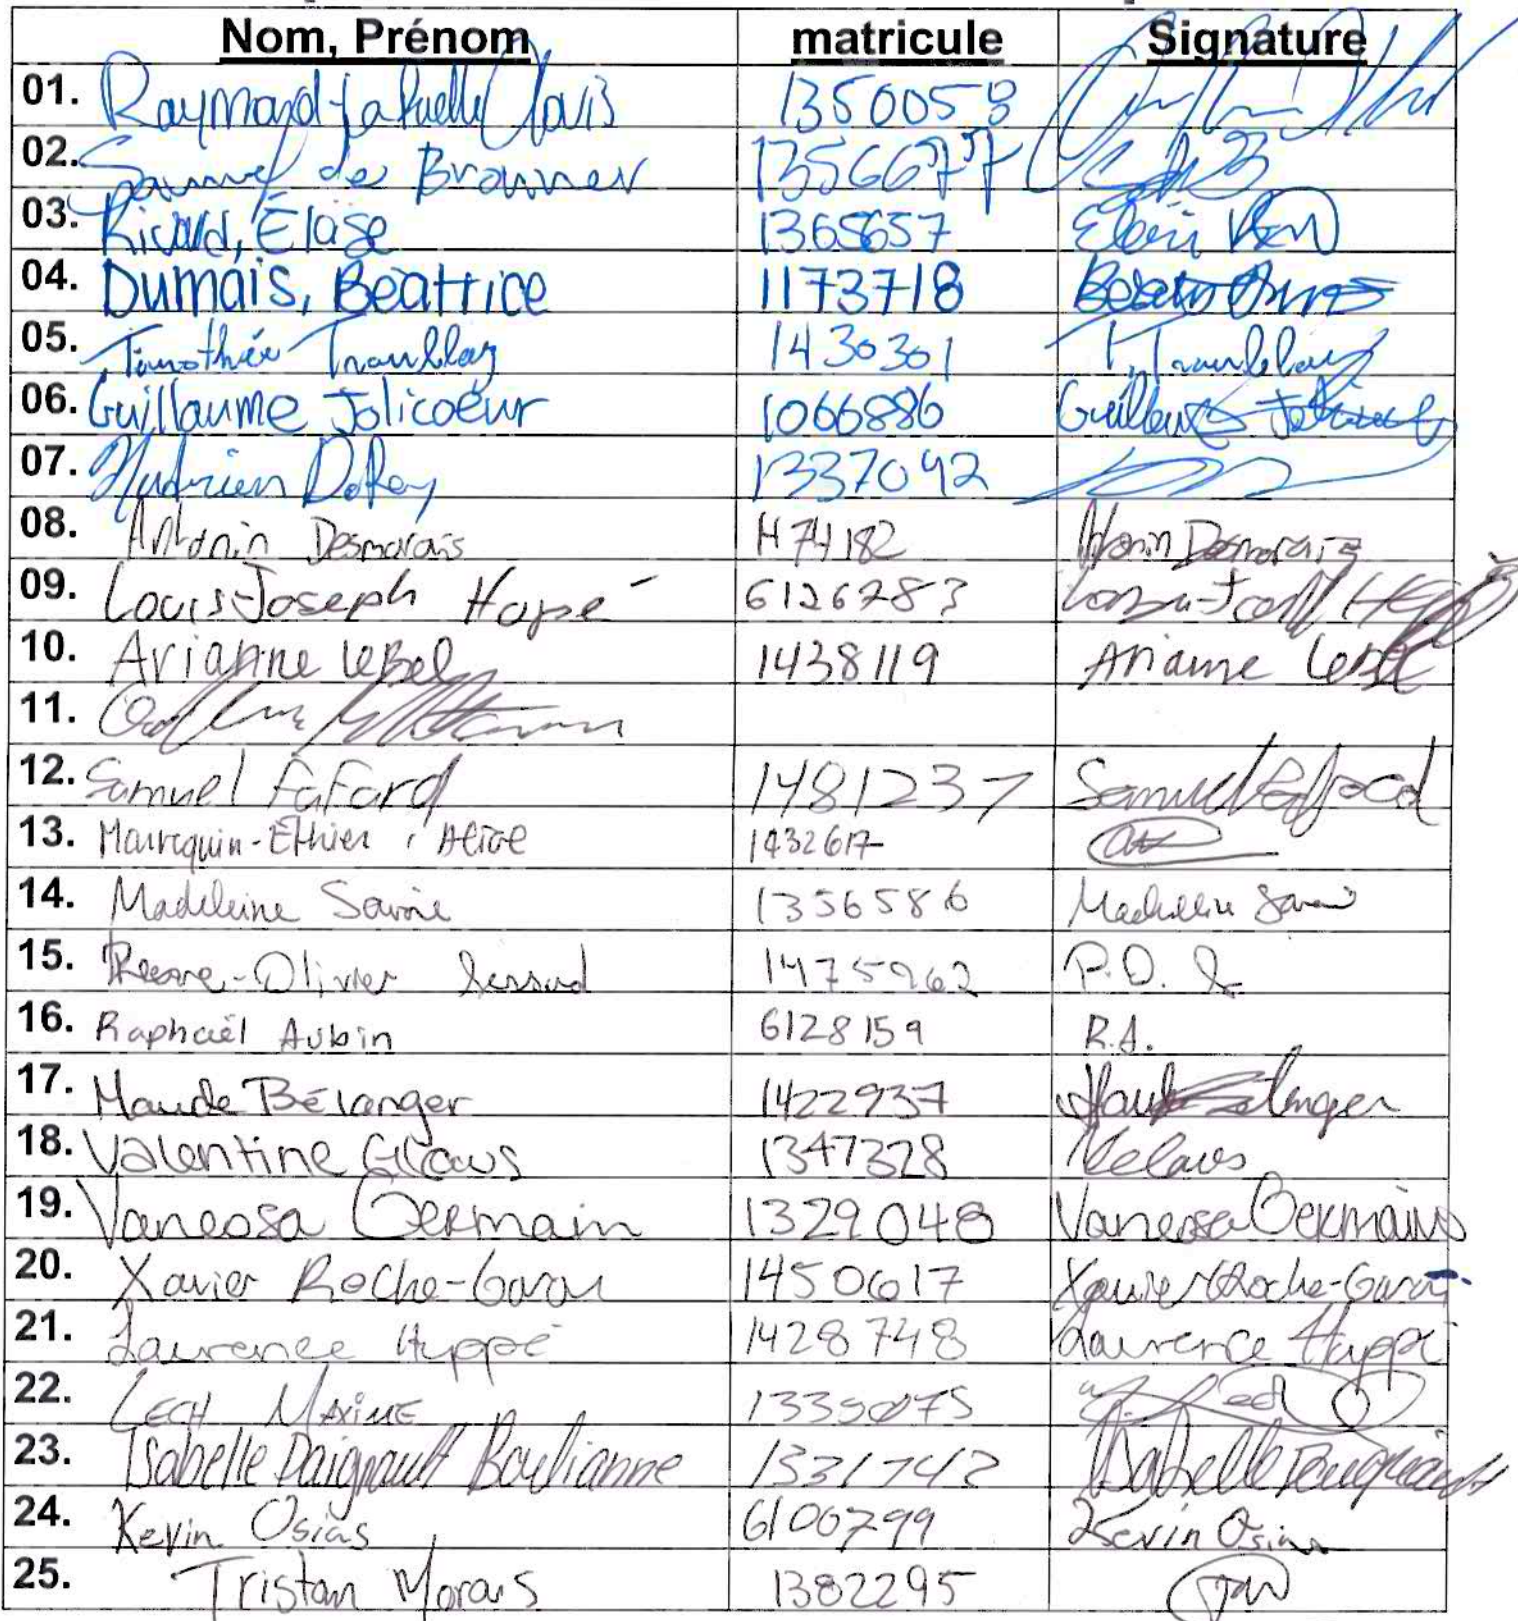 Nom, Prénom matricule Signature
01. Raymond-Latuelle Clovis 1350058
02. Samuel de Brouwer 1356677
03. Rivard, Élaise 1365657
04. Dumais, Béatrice 1173718
05. Timothée Tremblay 1430301 T. Tremblay
06. Guillaume Jolicoeur 1066886 Guillaume Jolicoeur
07. DeRoy 1337092
08. Antonin Desmarais 1474182 Antonin Desmarais
09. Louis-Joseph Huppé 6126783
10. Arianne LeBel 1438119 Arianne LeBel
11.
12. Samuel Fafard 1481237 Samuel Fafard
13. Marrequin-Ethier, Alice 1432617
14. Madeleine Savoie 1356586 Madeleine Savoie
15. Pierre-Olivier 1475962 P.O.
16. Raphaël Aubin 6128159 R.A.
17. Maude Bélanger 1422937
18. Valentine Claus 1347328 VClaus
19. Vanessa Germain 1329048 Vanessa Germain
20. Xavier Roche-Garau 1450617 Xavier Roche-Garau
21. Laurence Huppé 1428748 Laurence Huppé
22. LECH MAXIME
23. Isabelle Daignault Boulianne 1331742 Isabelle Daignault
24. Kevin Osias 6100799 Kevin Osias
25. Tristan Morais 1382295